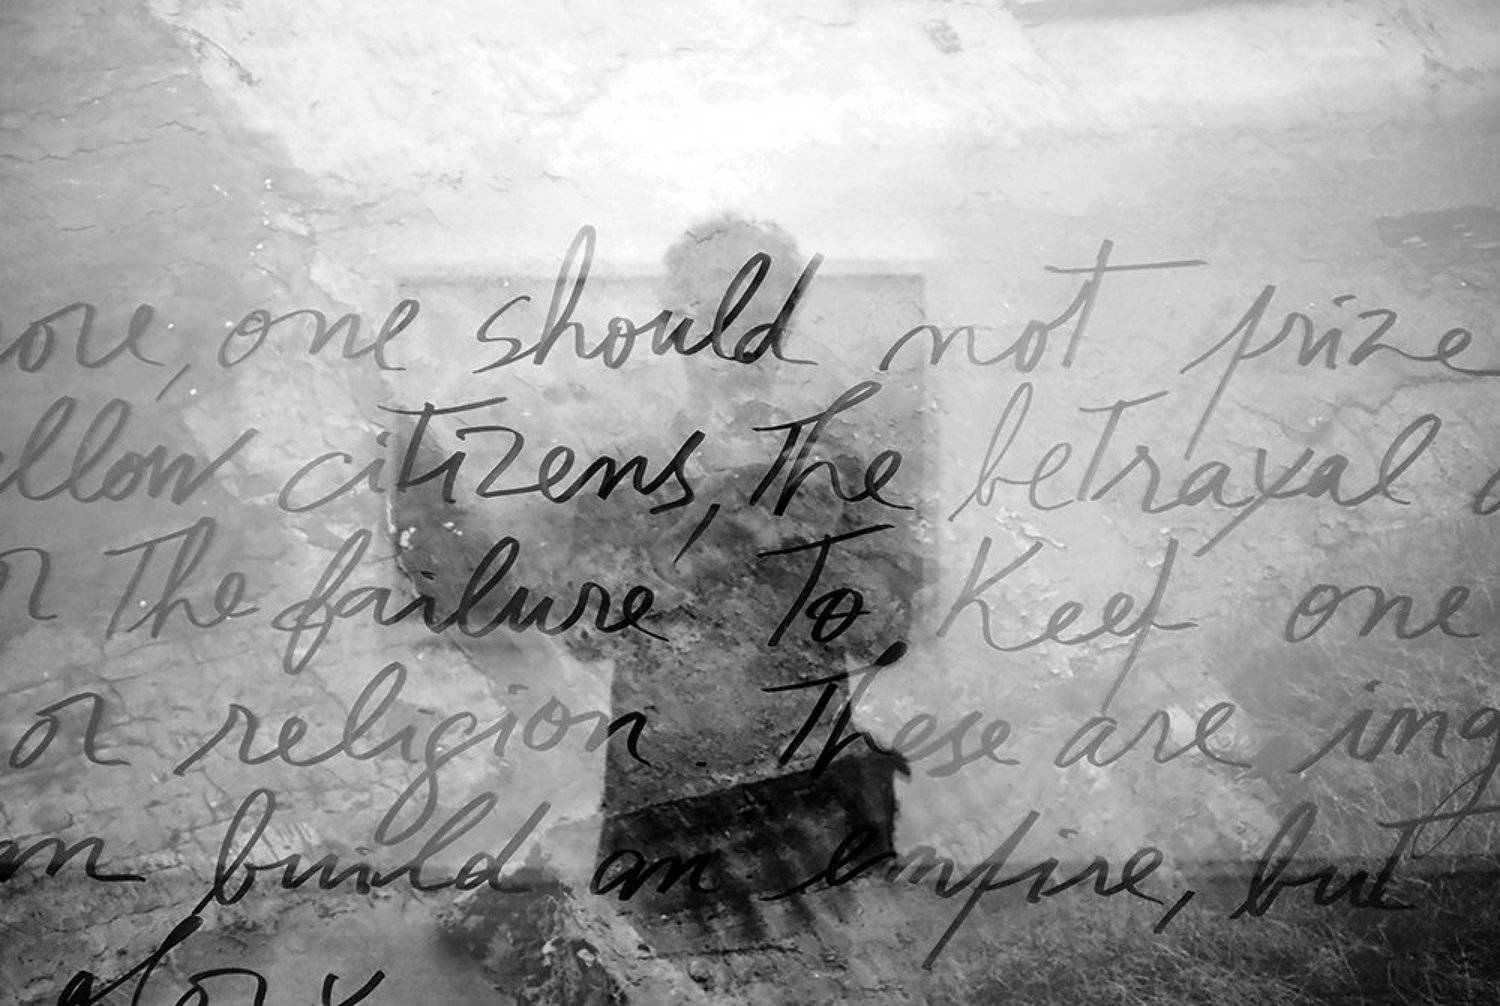 ore, one should not prize
ellow citizens, the betrayal
or the failure to keep one
or religion. These are ing
an build an empire, but
glory